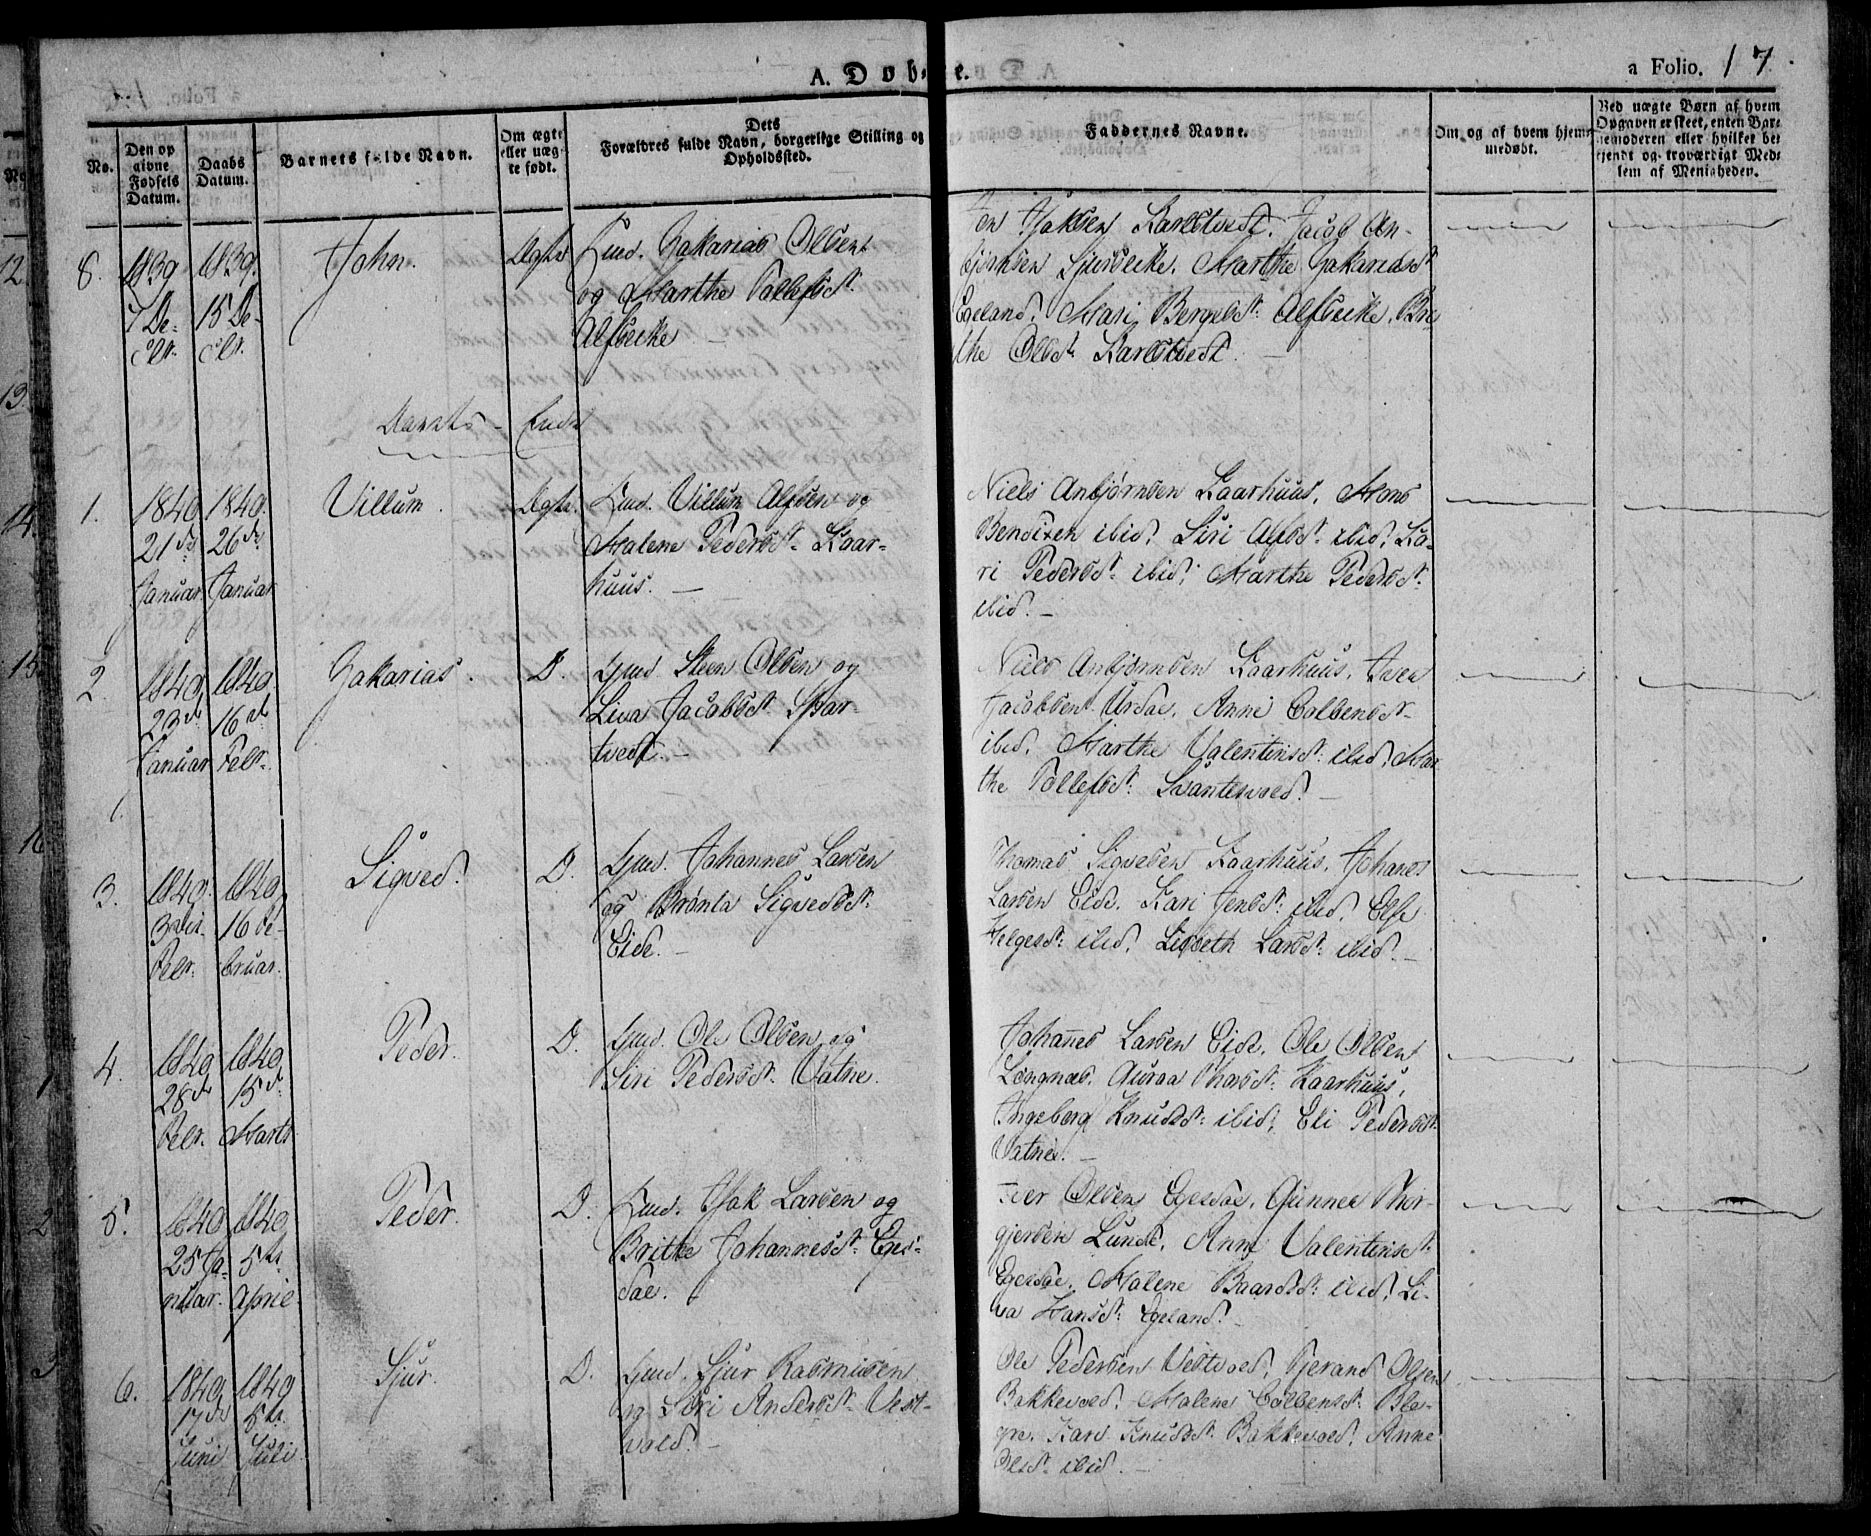 A. Døbte.
a Folio. 17.
No.
Den opgivne Fødsels Datum.
Daabs Datum.
Barnets fulde Navn.
Om ægte eller uægte født.
Dets Forældres fulde Navn, borgerlige Stilling og Opholdssted.
Faddernes Navne.
Om, og af hvem hjemmedøbt.
Ved uægte Børn af hvem Opgaven er skeet, enten Barnemoderen eller hvilket bekjendt og troværdigt Medlem af Menigheden.
8.
1839
7 De-
cbr.
1839.
15 De-
cbr.
John.
Ægte
Gmd. Zakarias Olsen
og Marthe Tollefsdt.
Alfseike
Haksen Karlstvedt. Jacob An-
bjørnsen Sjurseike. Marthe Zakariasdt
Egeland. Mari Bergesdt. Alfseike. Bri
the Olsdt. Karlstvedt.
Aarets Ende
1.
1840
21de
Januar
1840.
26de
Januar
Villum.
Ægte.
Gmd. Villum Alfsen og
Malene Pedersdt. Kaar-
huus.
Niels Anbjørnsen Kaarhuus, Mons
Bendixen ibid. Siri Alfsdt. ibid. Ka-
ri Pedersdt. ibid. Marthe Pedersdt.
ibid.
2.
1840
23de
Januar
1840.
16de
Febr.
Zakarias.
D.
Gmd. Steen Olsen og
Liva Jacobsdt.
tvedt.
Niels Anbjørnsen Kaarhuus. Iver
Jacobsen Urdal. Anni Colbensdt.
ibid. Marthe Valentinsdt. ibid. Mar
the Tollefsdt. Svantesvold.
3.
1840.
3die
Febr.
1840
16 Fe-
bruar.
Sigved.
D.
Gmd. Johannes Larsen
og Brønla Sigvedsdt.
Eide.
Thomas Sigvedsen Kaarhuus. Johanes
Larsen Eide. Kari Jensdt. ibid. Else
Helgesdt. ibid. Lisbeth Larsdt. ibid.
4.
1840
28de
Febr.
1840
15de
Marts
Peder.
D.
Gmd. Ole Olsen og
Siri Pedersdt. Vatne.
Johanes Larsen Eide. Ole Olsen
Longnæs. Guraa Thorsdt. Kaarhuus.
Ingeborg Knudsdt. ibid. Eli Pedersdt.
Vatne.
5.
1840
25 Ja-
nuar.
1840
5te
April
Peder.
D.
Gmd. Hak Larsen og
Brithe Johannesdt. Eges-
dal.
Iver Olsen Egesdal. Gunner Thor-
gjersen Lunde. Anni Valentinsdt.
Egesdal. Malene Baardsdt. ibid. Li-
va Hansdt. Egeland.
6.
1840
17de
Juni
1840
5te
Juli
Sjur.
D.
Gmd. Sjur Rasmusen
og Siri Andersdt. Vest-
vold.
Ole Pedersen Vestvold. Tjerand Olsen
Bakkevold. Malene Colbensdt. Ble-
gre. Kari Knudsdt. Bakkevold. Anne
Olsdt. ibid.